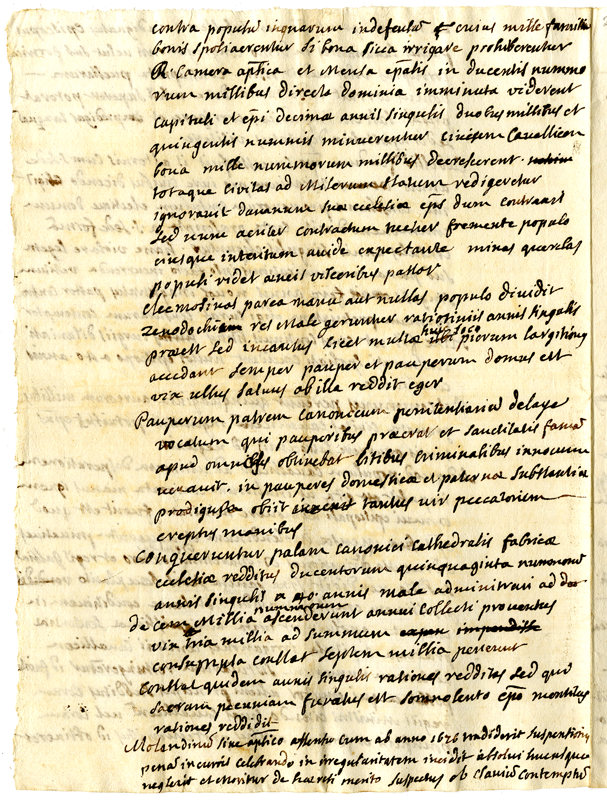 contra populũ inquarum indefensũ & cuius mille familiæ
bonis spoliaerentur si bona sica irrigare prohiberentur
R. Camera aptica et Mensa epalis in ducentis nummo
rum millibus directa dominia imminuta viderent
capituli et epi decimæ annis singulis duobus millibus et
quingentis nummis minuerentur civium Cavallicen
bona mille nummorum millibus decrescerent.
totaque civitas ad Miserum statum redigeretur
ignoravit damnum suæ ecclesiæ eps dum contraxit
sed nunc acriter contractum tuetur fremente populo
eiusque interitum avide expectante minas querelas
populi videt pastor
elecmosinas parca manu aut nullas populo dividit
xenodochium res Male geruntur rationiniis annis singulis
præest sed incautus licet multæ huic loco piorum largitiones
accedant semper pauper et pauperum domus est
vix ullus salvus ab illa reddit eger
Pauperum patrem canonicum penitentiariũ delaye
vocatum qui pauperibus præerat et sanctitatis famã
apud omnes obtinebat litibus criminalibus innocuum
vexavit. in pauperes domesticæ et paternæ substantiæ
prodigus obiit tantus vir peccatorum
ereptus manibus
Conqueruntur palam canonici cathedralis fabricæ
ecclesiæ redditus ducentorum quinquaginta nummorũ
annis singulis a 40 annis male administrari ad
decem Millia nummorum ascenderunt annui collecti proventus
vix tria millia ad summum
consumpta constat septem millia perierunt
constat quidem annis singulis rationes redditas sed qui
sacram pecuniam furatus est somnolento epo mentitas
rationes reddidit
Molandinũ sine aptico assensu cum ab anno 1676 tradiderit suspentionis
penã incurris celebrando in irregularitatem incidit absolvi
neglexit et moritur de hæresi merito suspectus ob claviũ contemptũ